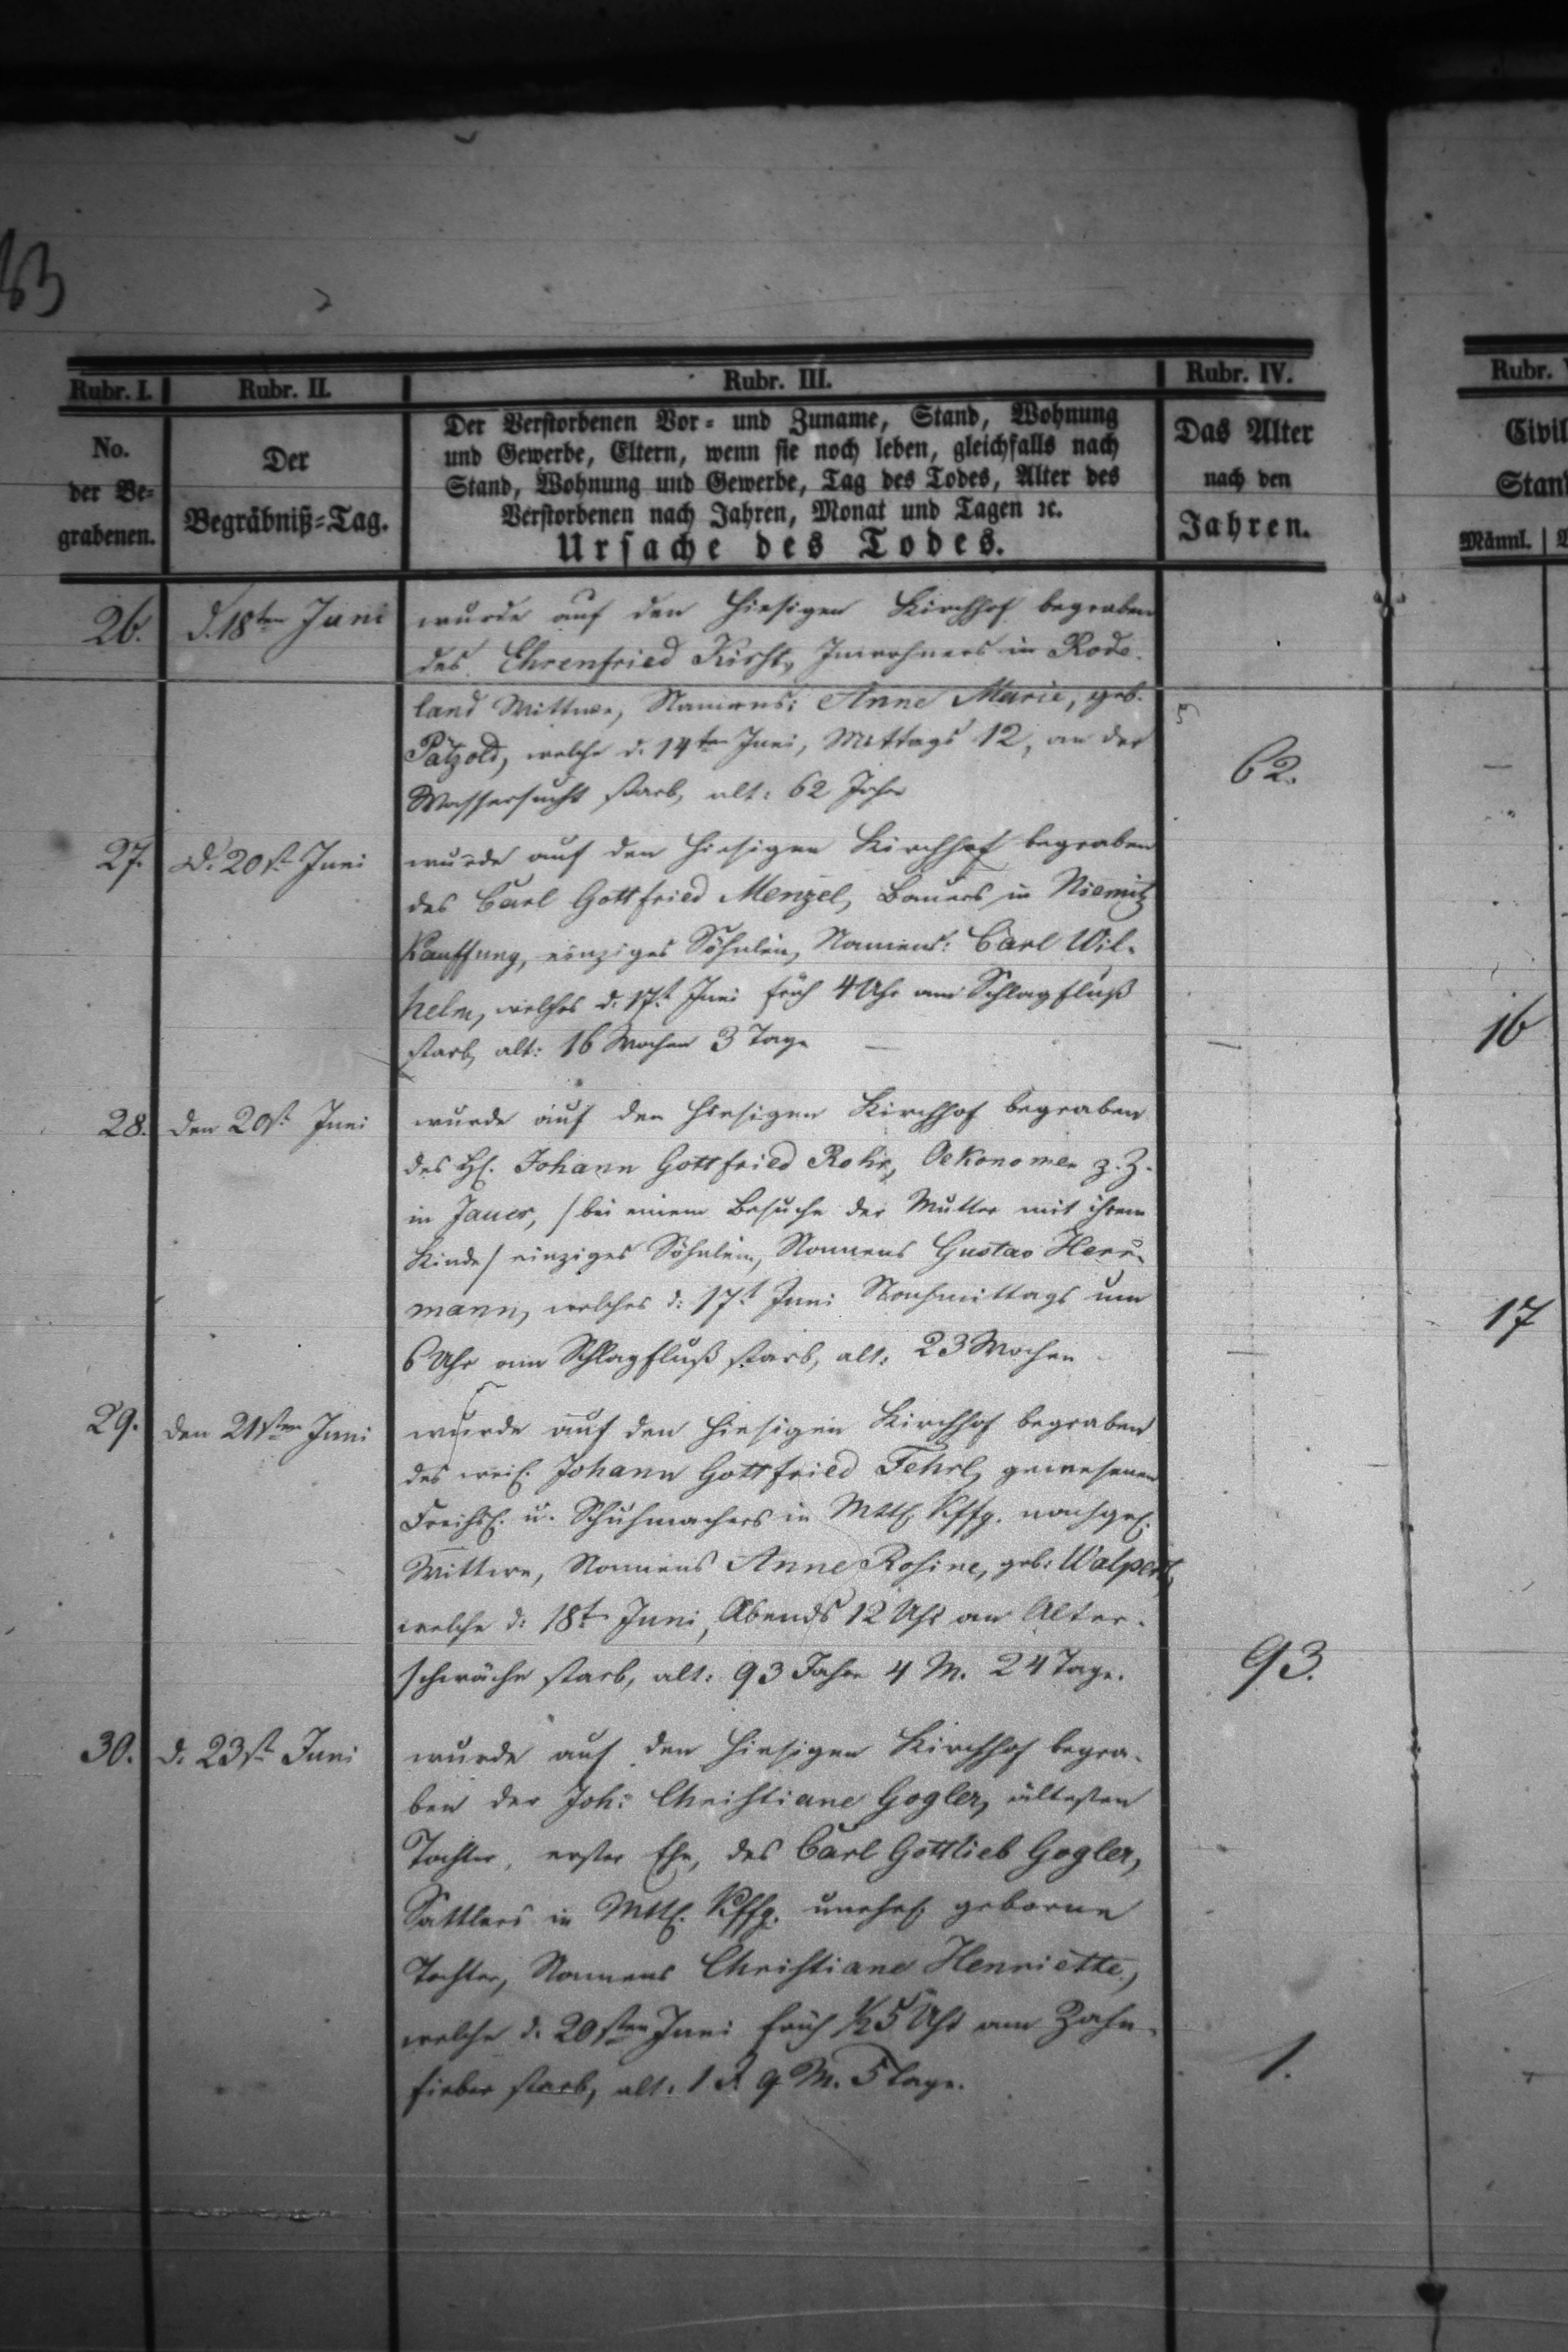 83
Rubr. I.
Rubr. II.
Rubr. III.
Rubr. IV.
Rubr.
No.
der Be-
grabenen.
Der
Begräbniß-Tag.
Der Verstorbenen Vor- und Zuname, Stand, Wohnung
und Gewerbe, Eltern, wenn sie noch leben, gleichfalls nach
Stand, Wohnung und Gewerbe, Tag des Todes, Alter des
Verstorbenen nach Jahren, Monat und Tagen ꝛc.
Ursache des Todes.
Das Alter
nach den
Jahren.
Civil
Stand
Männl.
26.
d. 18ten Juni
wurde auf den hiesigen Kirchhof begraben
des Ehrenfried Inwohners in Rode-
land Wittwe, Namens: Anne Marie, geb.
Pätzold, welche d. 14ten Juni, Mittags 12, an der
Wassersucht starb, alt: 62 Jahr
62.
27.
D. 20st. Juni
wurde auf den hiesigen Kirchhof begraben
des Carl Gottfried Menzel, Bauers in Niemitz
Kauffung, einziges Söhnlein, Namens: Carl Wil-
helm, welches d. 17t. Juni früh 4 Uhr am Schlagfluß
starb, alt: 16 Wochen 3 Tage
—
16
28.
den 20st. Juni
wurde auf den hiesigen Kirchhof begraben
des H. Johann Gottfried Rohr, Oekonomen z. Z.
in Jauer, /bei einem Besuche der Mutter mit ihrem
Kinde/ einziges Söhnlein, Namens Gustav Herr-
mann, welches d: 17t Juni Nachmittags um
6 Uhr am Schlagfluß starb, alt: 23 Wochen
—
17
29.
den 21sten Juni
wurde auf den hiesigen Kirchhof begraben
des weil. Johann Gottfried Fehrl, gewesenen
Freihsl. u. Schuhmachers in Mttl. Kffg. nachgel.
Wittwe, Namens Anne Rosine, geb: Walpert,
welche d: 18t. Juni, Abends 12 Uhr an Alter-
schwäche starb, alt: 93 Jahre 4 M. 24 Tage.
93.
30.
d. 23st. Juni
wurde auf den hiesigen Kirchhof begra-
ben der Joh: Christiane Gogler, ältesten
Tochter, erster Ehe, des Carl Gottlieb Gogler,
Sattlers in Mttl. Kffg. unehel. geborne
Tochter, Namens Christiane Henriette,
welche d. 20sten Juni früh ½5 Uhr am Zahn-
fieber starb, alt. 1 J. 9 M. 5 Tage.
1.